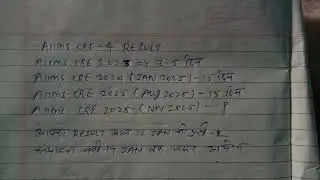 AIIMS CRE - 4 RESULT
AIIMS CRE 2023 =4 3-5 दिन
AIIMS CRE 2024 (JAN 2025) - 15 दिन
AIIMS CRE 2025 (AUG 2025) - 15 दिन
AIIMS CRE 2025 - (NOV 2025) - ?
आपका RESULT 12 JAN को
नहीं 17 JAN तक जरूर आयेगा